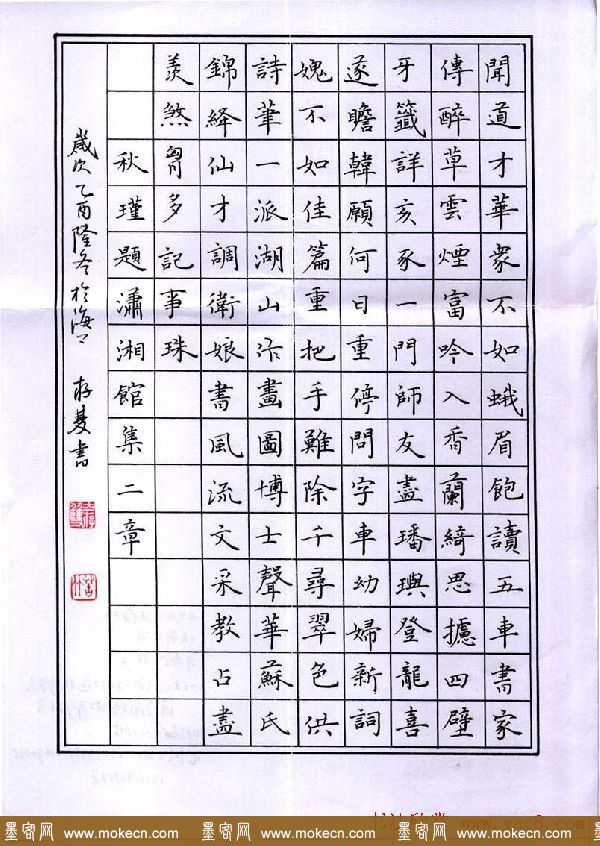 聞道才華衆不如蛾眉飽讀五車書家
傳醉草雲煙富吟入香蘭綺思攄四壁
牙籤詳亥豕一門師友盡璠璵登龍喜
遂瞻韓願何日重停問字車幼婦新詞
媿不如佳篇重把手難除千尋翠色供
詩筆一派湖山畫圖博士聲華蘇氏
錦絳仙才調衛娘書風流文采教占盡
羨煞胷多記事珠
秋瑾題瀟湘館集二章
歲次乙酉隆冬於海上 存書
墨客网 www.mokecn.com 墨客网 www.mokecn.com 墨客网 www.mokecn.com